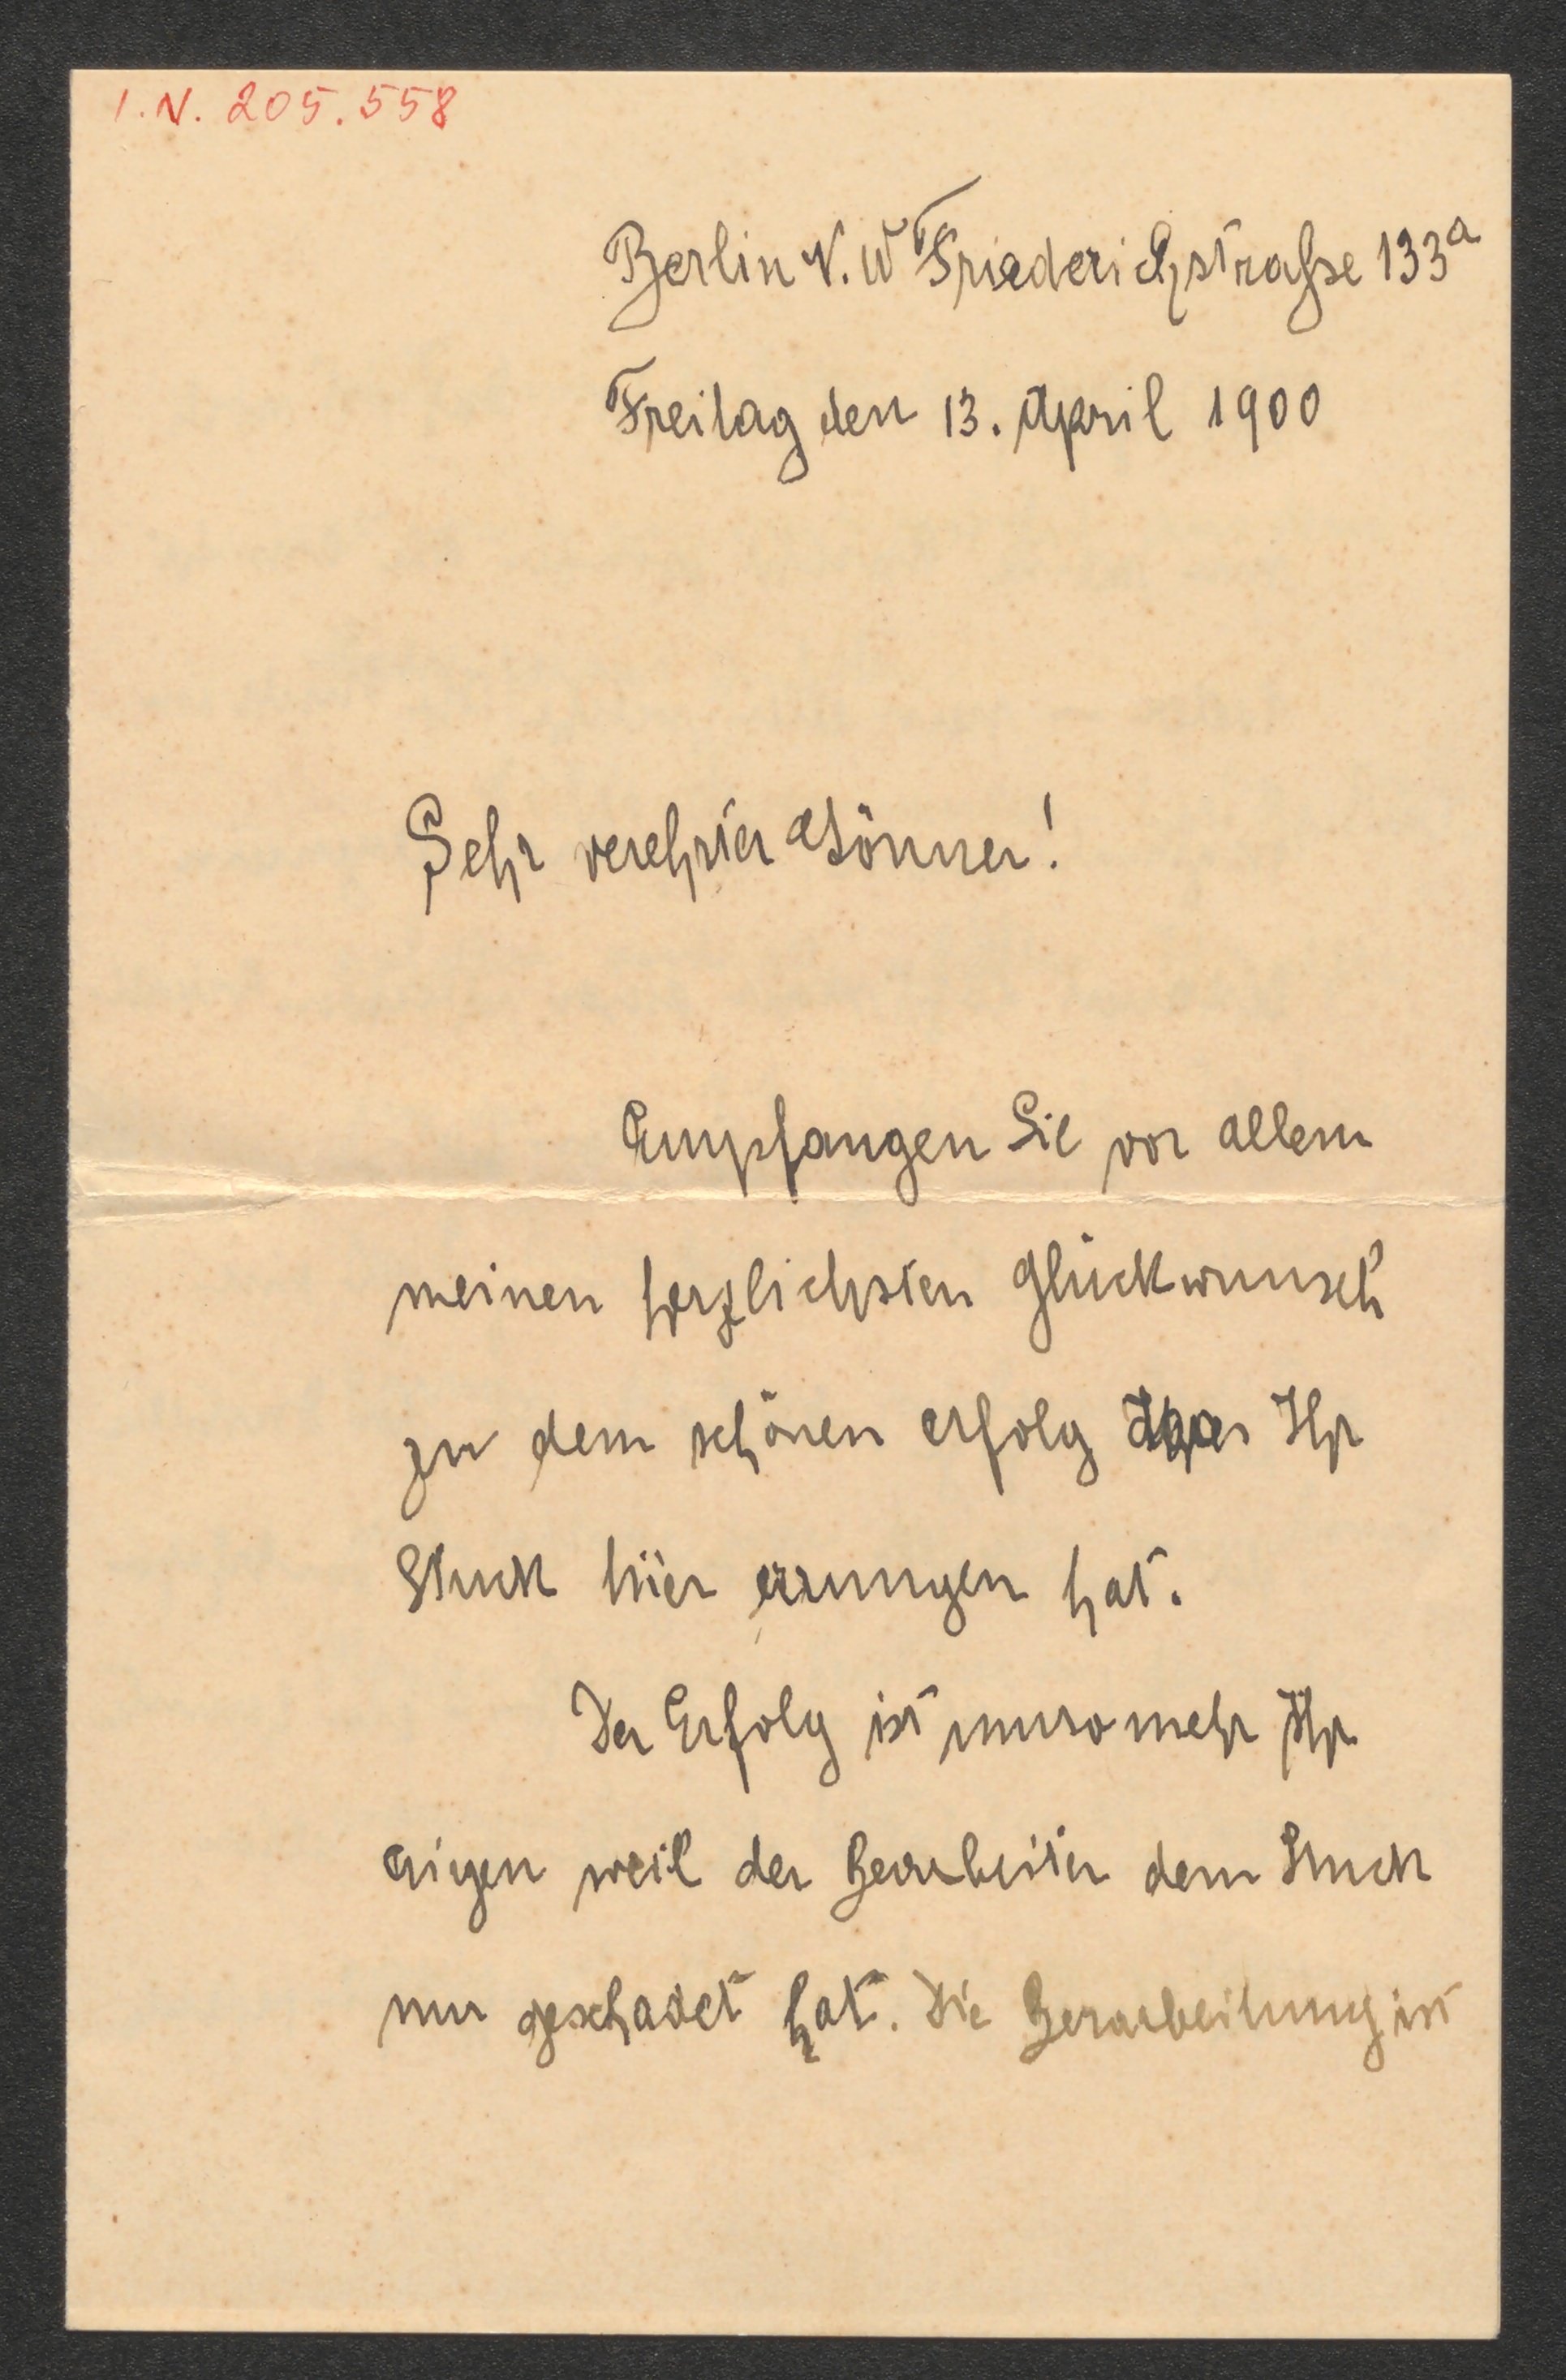 I.N. 205.558
Berlin N.W Friederichstraße 133a
Freitag den 13. April 1900
Sehr verehrter Gönner!
Empfangen Sie vor allem
meinen herzlichsten Glückwunsch
zu dem schönen erfolg Ihr
Stück hier errungen hat.
Der Erfolg ist umso mehr Ihr
eigen weil der Bearbeiter dem Stück
nur geschadet hat. Die Bearbeitung ist